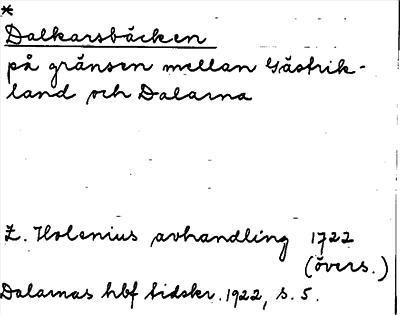 *
Dalkarsbäcken
på gränsen mellan Gästrik-
land och Dalarna
Z. Holenius avhandling 1722
(övers.)
Dalarnas hbf tidskr. 1922, s. 5.